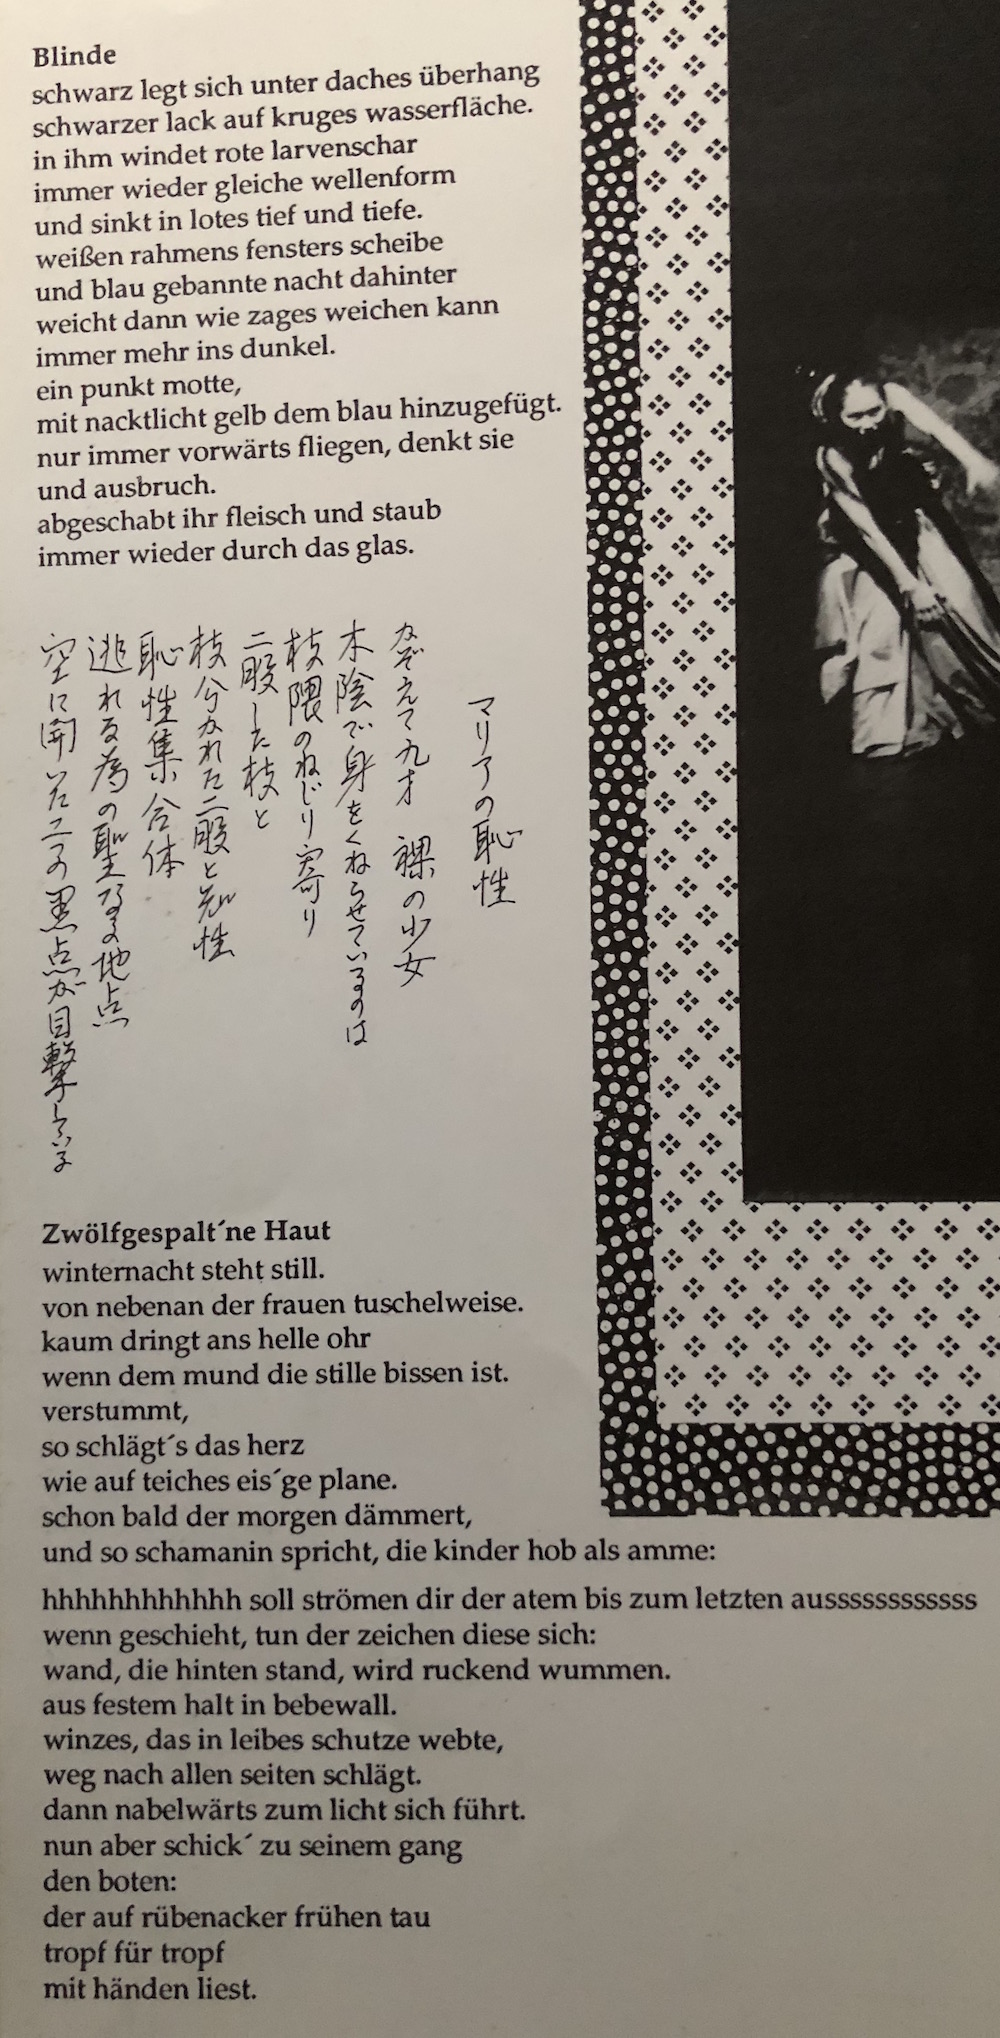 Blinde
schwarz legt sich unter daches überhang
schwarzer lack auf kruges wasserfläche.
in ihm windet rote larvenschar
immer wieder gleiche wellenform
und sinkt in lotes tief und tiefe.
weißen rahmens fensters scheibe
und blau gebannte nacht dahinter
weicht dann wie zages weichen kann
immer mehr ins dunkel.
ein punkt motte,
mit nacktlicht gelb dem blau hinzugefügt.
nur immer vorwärts fliegen, denkt sie
und ausbruch.
abgeschabt ihr fleisch und staub
immer wieder durch das glas.
マリアの恥性
かぞえて九才 裸の少女
木陰で身をくねらせているのは
枝隈のねじり寄り
二股した枝と
枝分かれた二股と恥性
恥性集合体
逃れる為の聖なる地点
空に開いた二つの黒点が目撃している
Zwölfgespalt´ne Haut
winternacht steht still.
von nebenan der frauen tuschelweise.
kaum dringt ans helle ohr
wenn dem mund die stille bissen ist.
verstummt,
so schlägt´s das herz
wie auf teiches eis´ge plane.
schon bald der morgen dämmert,
und so schamanin spricht, die kinder hob als amme:
hhhhhhhhhhhh soll strömen dir der atem bis zum letzten aussssssssssss
wenn geschieht, tun der zeichen diese sich:
wand, die hinten stand, wird ruckend wummen.
aus festem halt in bebewall.
winzes, das in leibes schutze webte,
weg nach allen seiten schlägt.
dann nabelwärts zum licht sich führt.
nun aber schick´ zu seinem gang
den boten:
der auf rübenacker frühen tau
tropf für tropf
mit händen liest.